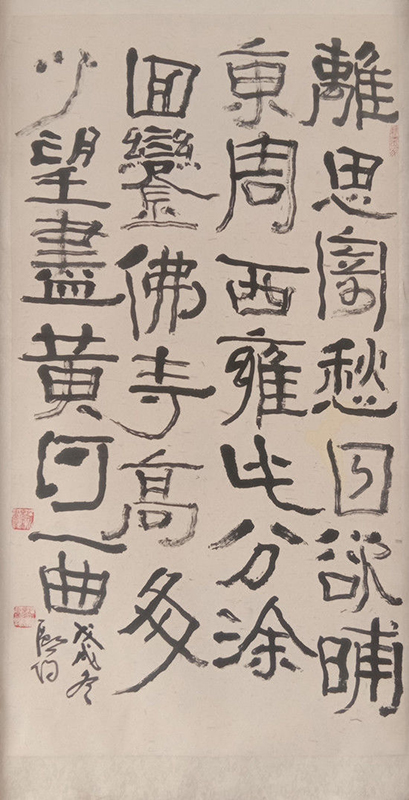 離思愁日欲晡
東周西雍此分涂
回鑾佛寺高多
少望盡黃河一曲
戊戌冬